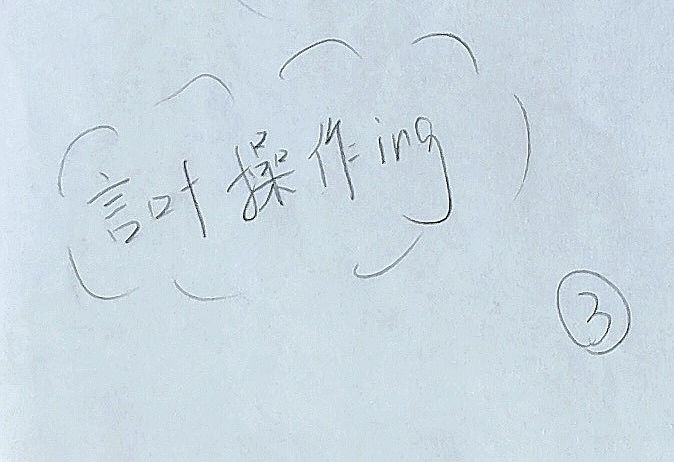 言叶操作ing
③